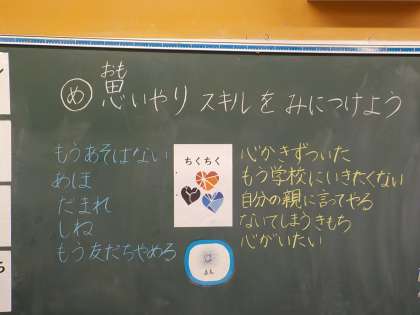 おも
め 思いやり スキルを みにつけよう
もうあそばない
あほ
だまれ
しね
もう友だちやめる
ちくちく
心がきずついた
もう学校にいきたくない
自分の親に言ってやる
ないてしまうきもち
心がいたい
は